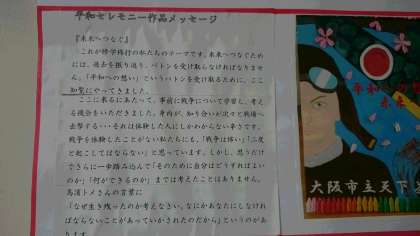 平和セレモニー作品メッセージ
『未来へつなぐ』
これが修学旅行の私たちのテーマです。未来へつなぐため
には、過去を振り返り、バトンを受け取らなければなりませ
ん。「平和への想い」というバトンを受け取るために、ここ
知覧にやってきました。
ここに来るにあたって、事前に戦争について学習し、考え
る機会をいただきました。身内が、知り合いが次々と戦場へ
出撃する･･･それは体験した人にしかわからない辛さです。
戦争を体験したことがない私たちにも、「戦争は怖い」「二度
と起こしてはならない」と思っています。しかし、思うだけ
でさらに一歩踏み込んで「そのために自分はどうすればよい
のか」「何ができるのか」までは考えたことはありません。
鳥濱トメさんの言葉に
「なぜ生き残ったのか考えなさい。なにかあなたにしなけれ
ばならないことがあっていかされたのだから」というのがあ
平和への
未来
大阪市立天下